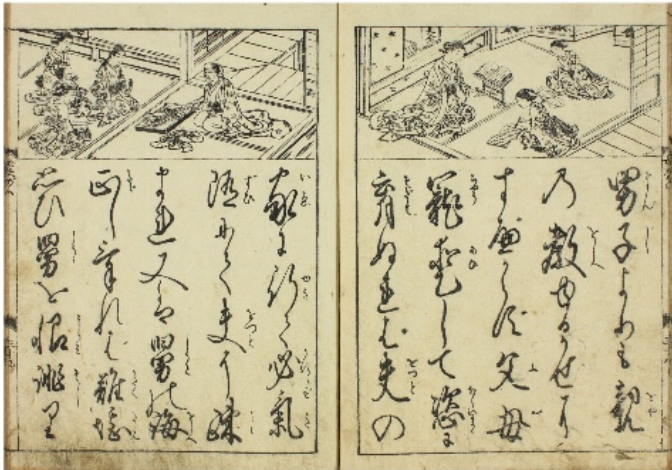 男子よりも親
乃教ゆるかせに
すへからす父母
寵愛して恣に
育ぬれは夫の
家に行て必氣
随にて夫に疎
まれ又は舅の誨
正しけれは難堪
思ひ舅を恨誹り